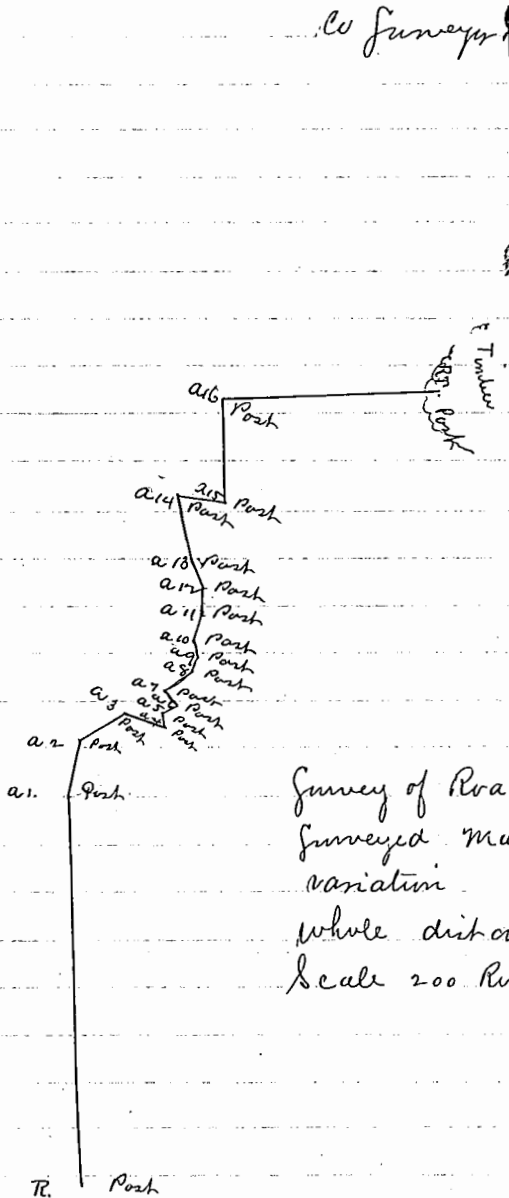 Co Surveyor
& Timber
R.P. Post
a16 Post
a14 Post a15 Post
a13 Post
a12 Post
a11 Post
a10 Post
a9 Post
a8 Post
a7 Post
a6 Post
a5 Post
a4 Post
a3 Post
a2 Post
a1. Post
Survey of Roa
Surveyed Ma
variation
whole dista
Scale 200 R
R. Post